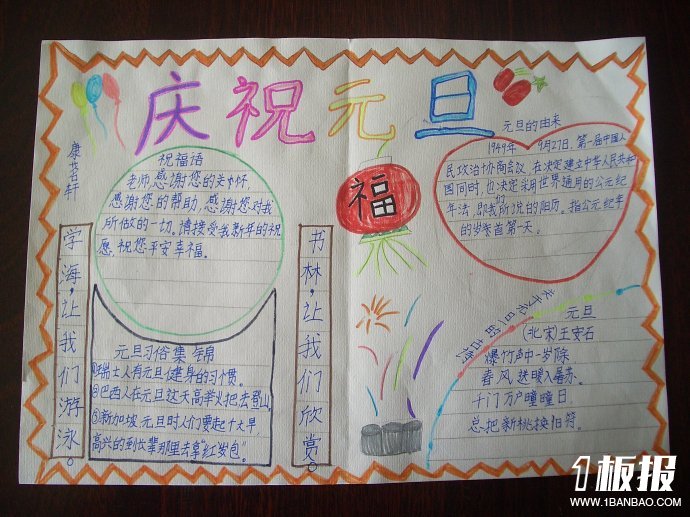 庆祝元旦
康茗轩
祝福语
老师,感谢您的关怀,
感谢您的帮助,感谢您对我
所做的一切。请接受我新年的祝
愿,祝您平安幸福。
学海,让我们游泳。
元旦习俗集锦
①瑞士人有元旦健身的习惯。
②巴西人在元旦这天高举火把去登山。
③新加坡元旦时人们要起个大早,
高兴的到长辈那里去拿"红岁包"。
书林,让我们欣赏。
福
元旦的由来
1949年9月27日,第一届中国人
民政治协商会议,在决定建立中华人民共和
国同时,也决定采用世界通用的公元纪
年法,即我们所说的阳历。指公元纪年
的岁首第一天。
关于元旦的古诗
元旦
(北宋)王安石
爆竹声中一岁除
春风送暖入屠苏.
千门万户曈曈日,
总把新桃换旧符.
1板报
WWW.1BANBAO.COM